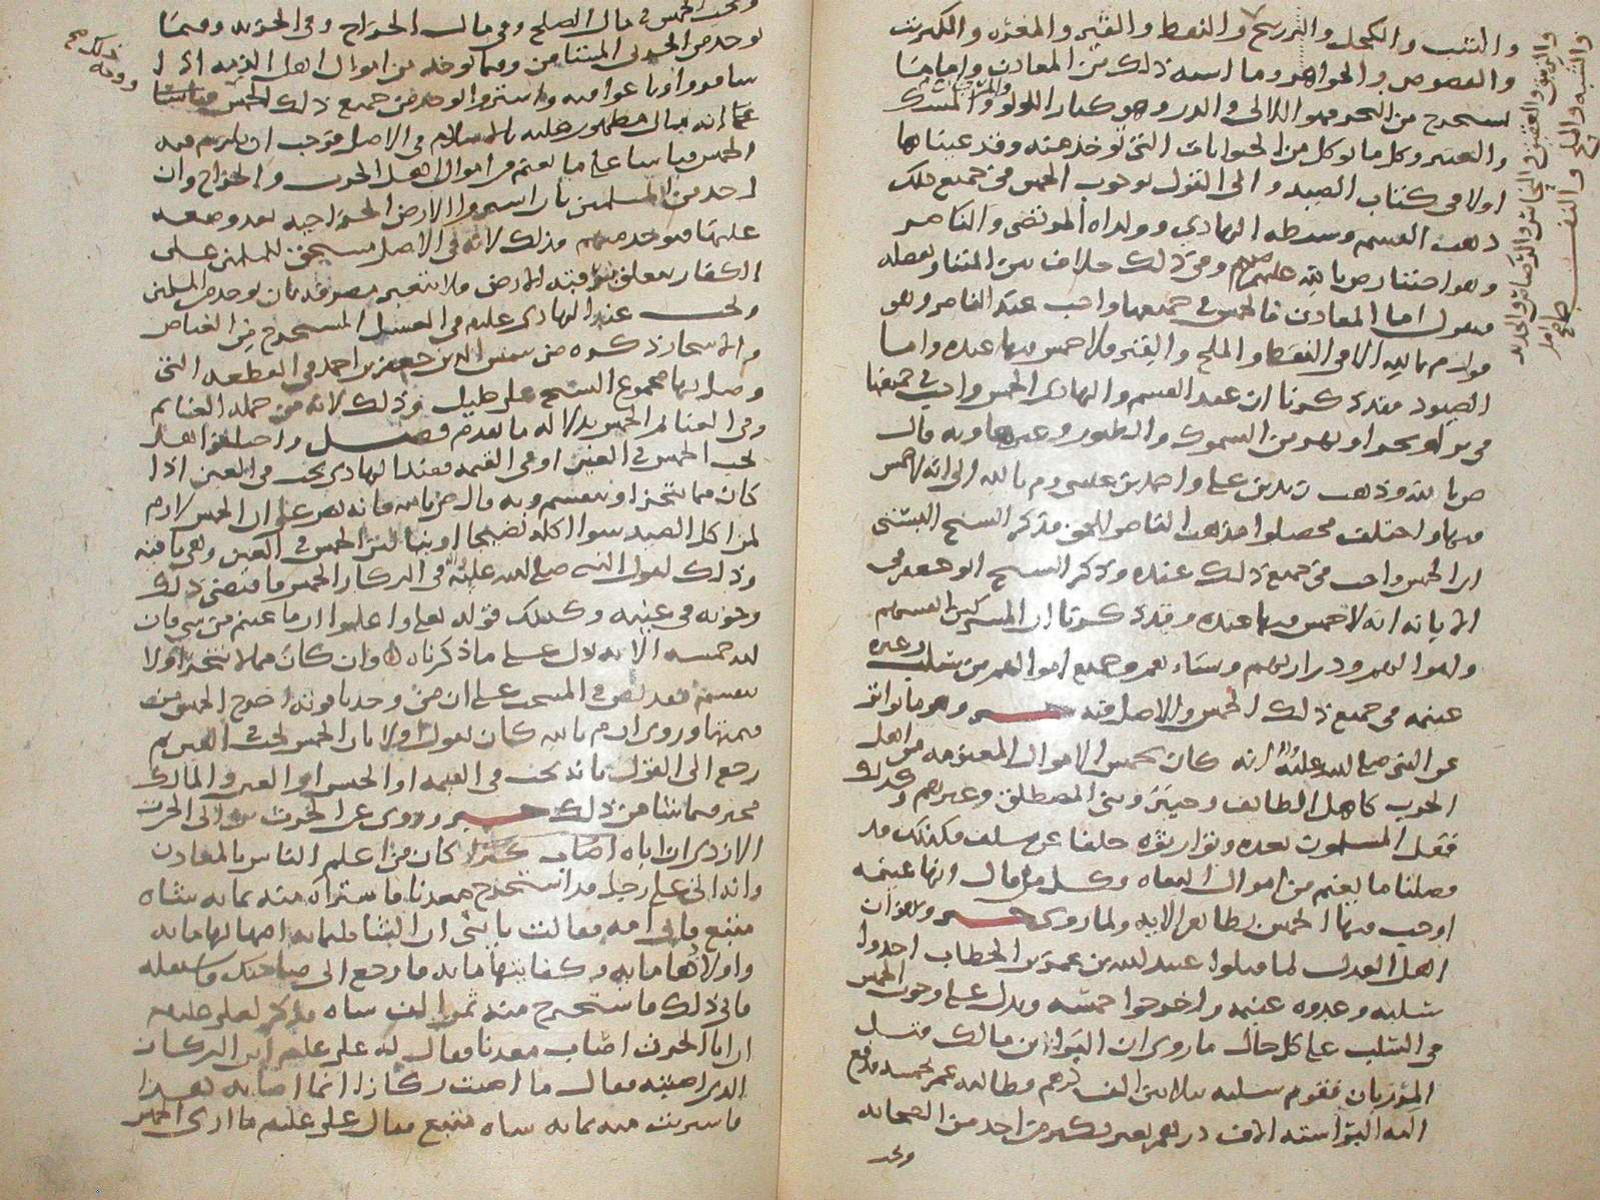 والشب والكحل والزرنيخ والنفط والقير والمغره والكبريت
والفصوص والجواهر وما اشبه ذلك من المعادن واما ما
يستخرج من البحر فهو اللالى والدر وهو كبار اللولو والمسك
والعنبر وكل ما يوكل من الحيوانات التي توخذ منه وقد عيناها
اولا في كتاب الصيد والى القول بوجوب الخمس في جميع ذلك
ذهب القسم وسبطه الهادي وولداه المرتضى والناصر
وهو اختيار ص بالله عليهم وفي ذلك خلاف بين المتنا وتفصله
فنقول اما المعادن فالخمس في جميعها واجب عند الناصر وهو
قول م بالله الا في النفط والملح والقير فلا خمس فيها عنده واما
الصيود فقد ذكرنا ان عند القسم والهادى الخمس واجب في جميعها
في بر او بحر او نهر من السموك والطيور وغيرها وبه قال
ص بالله وذهب زيد بن علي واحمد بن عيسى وم بالله الى انه لا خمس
فيها واختلف محصلوا مذهب الناصر للحق فذكر الشيخ
ان الخمس واجب في جميع ذلك عنده وذكر الشيخ ابو جعفر في
الابانه انه لا خمس فيها عنده وقد ذكرنا ان المشركين
واموالهم وذراريهم ونساءهم وجميع اموالهم من سلب وغيره
غنيمه في جميع ذلك الخمس والاصل فيه خبر وهو ما تواتر
عن النبي صلى الله عليه انه كان يخمس الاموال المغنومه من اهل
الحرب كاهل الطايف وحنين وبني المصطلق وغيرهم وكذلك
فعل المسلمون بعده وتوارثوه خلفا عن سلف فكذلك قد
فصلنا ما يغنم من اموال البغاه وكل مال انها غنيمه
اوجب فيها الخمس لظاهر الايه ولما روي خبر وهو ان
اهل العدل لما قتلوا عبيد الله بن عمر بن الخطاب اخذوا
سلبه وعدوه غنيمه واخرجوا خمسه ويدل على وجوب الخمس
في السلب على كل حال ما روي ان البرا بن مالك قتل
المرزبان فقوم سلبه ثلاثين الف درهم وطالبه عمر بخمسه فدفع
اليه البرا سته الاف درهم بغير نكير من احد من الصحابه
وتحب الخمس في مال الصلح وفي مال الخراج وفي الجزيه وفيما
يوخذ من الحربي المستامن وفيما يوخذ من اموال اهل الذمه اذا
سافروا وباعوا فيه واشتروا يوخذ من جميع ذلك الخمس قياسا
على انه مال مظهور عليه بالاسلام في الاصل فوجب ان يلزم فيه
الخمس قياسا على ما يغنم من اموال اهل الحرب والخراج وان
اخذ من المسلمين بان اسلموا الارض الخراجيه بعد وضعه
عليها فيوخذ منهم فذلك لانه في الاصل مستحق للمسلمين على
الكفار متعلق برقبه الارض فلا يتغير مصرفه بان يوخذ من المسلمين
ويجب عند الهادى عليه في العسل المستخرج من الغياض
والاشجار ذكره شمس الدين جعفر بن احمد في القطعه التي
وصل بها مجموع الشيخ علي خليل وذلك لانه من جمله الغنايم
وفي الغنايم الخمس بدلاله ما تقدم فصل واختلفوا هل
يجب الخمس في العين او في القيمه فعند الهادى يجب في العين اذا
كان مما يتجزا وينقسم وبه قال ص بالله فانه نص على ان الخمس لازم
لمن اكل الصيد سوا اكله نضيجا او نيا لان الخمس في العين
وذلك لقول النبي صلى الله عليه في الركاز الخمس فاقتضى ذلك
وجوبه في عينه وكذلك قوله تعالى واعلموا ان ما غنمتم من شي فان
لله خمسه الايه تدل على ما ذكرناه وان كان مما لا يتجزا ولا
ينقسم فقد نص في المنتخب على ان من وجد ياقوته اخرج الخمس من
قيمتها وروي ان م بالله كان يقول اولا بان الخمس يجب في العين ثم
رجع الى القول بانه يجب في القيمه او الخمس او العين والمالك
مخير فيما شا من ذلك خبر وروي عن الحرث بن ابي الحرث
الازدي ان اباه اصاب كنزا كان من اعلم الناس بالمعادن
وانه اتى على رجل قد استخرج معدنا فاشتراه منه بمايه شاه
متبع فاتى امه فقالت يا بني ان الشاه ثلثمايه امهاتها مايه
واولادها مايه وكفايتها مايه فارجع الى صاحبك فاستقله
فابى ذلك فاستخرج منه ثمن الف شاه فذكر لعلي عليه
ان ابا الحرث اصاب معدنا فقال له علي عليه اين الركاز
الذي اصبته فقال ما اصبت ركازا انما اصابه هذا
فاشتريته منه بمايه شاه متبع فقال علي عليه ما ارى الخمس